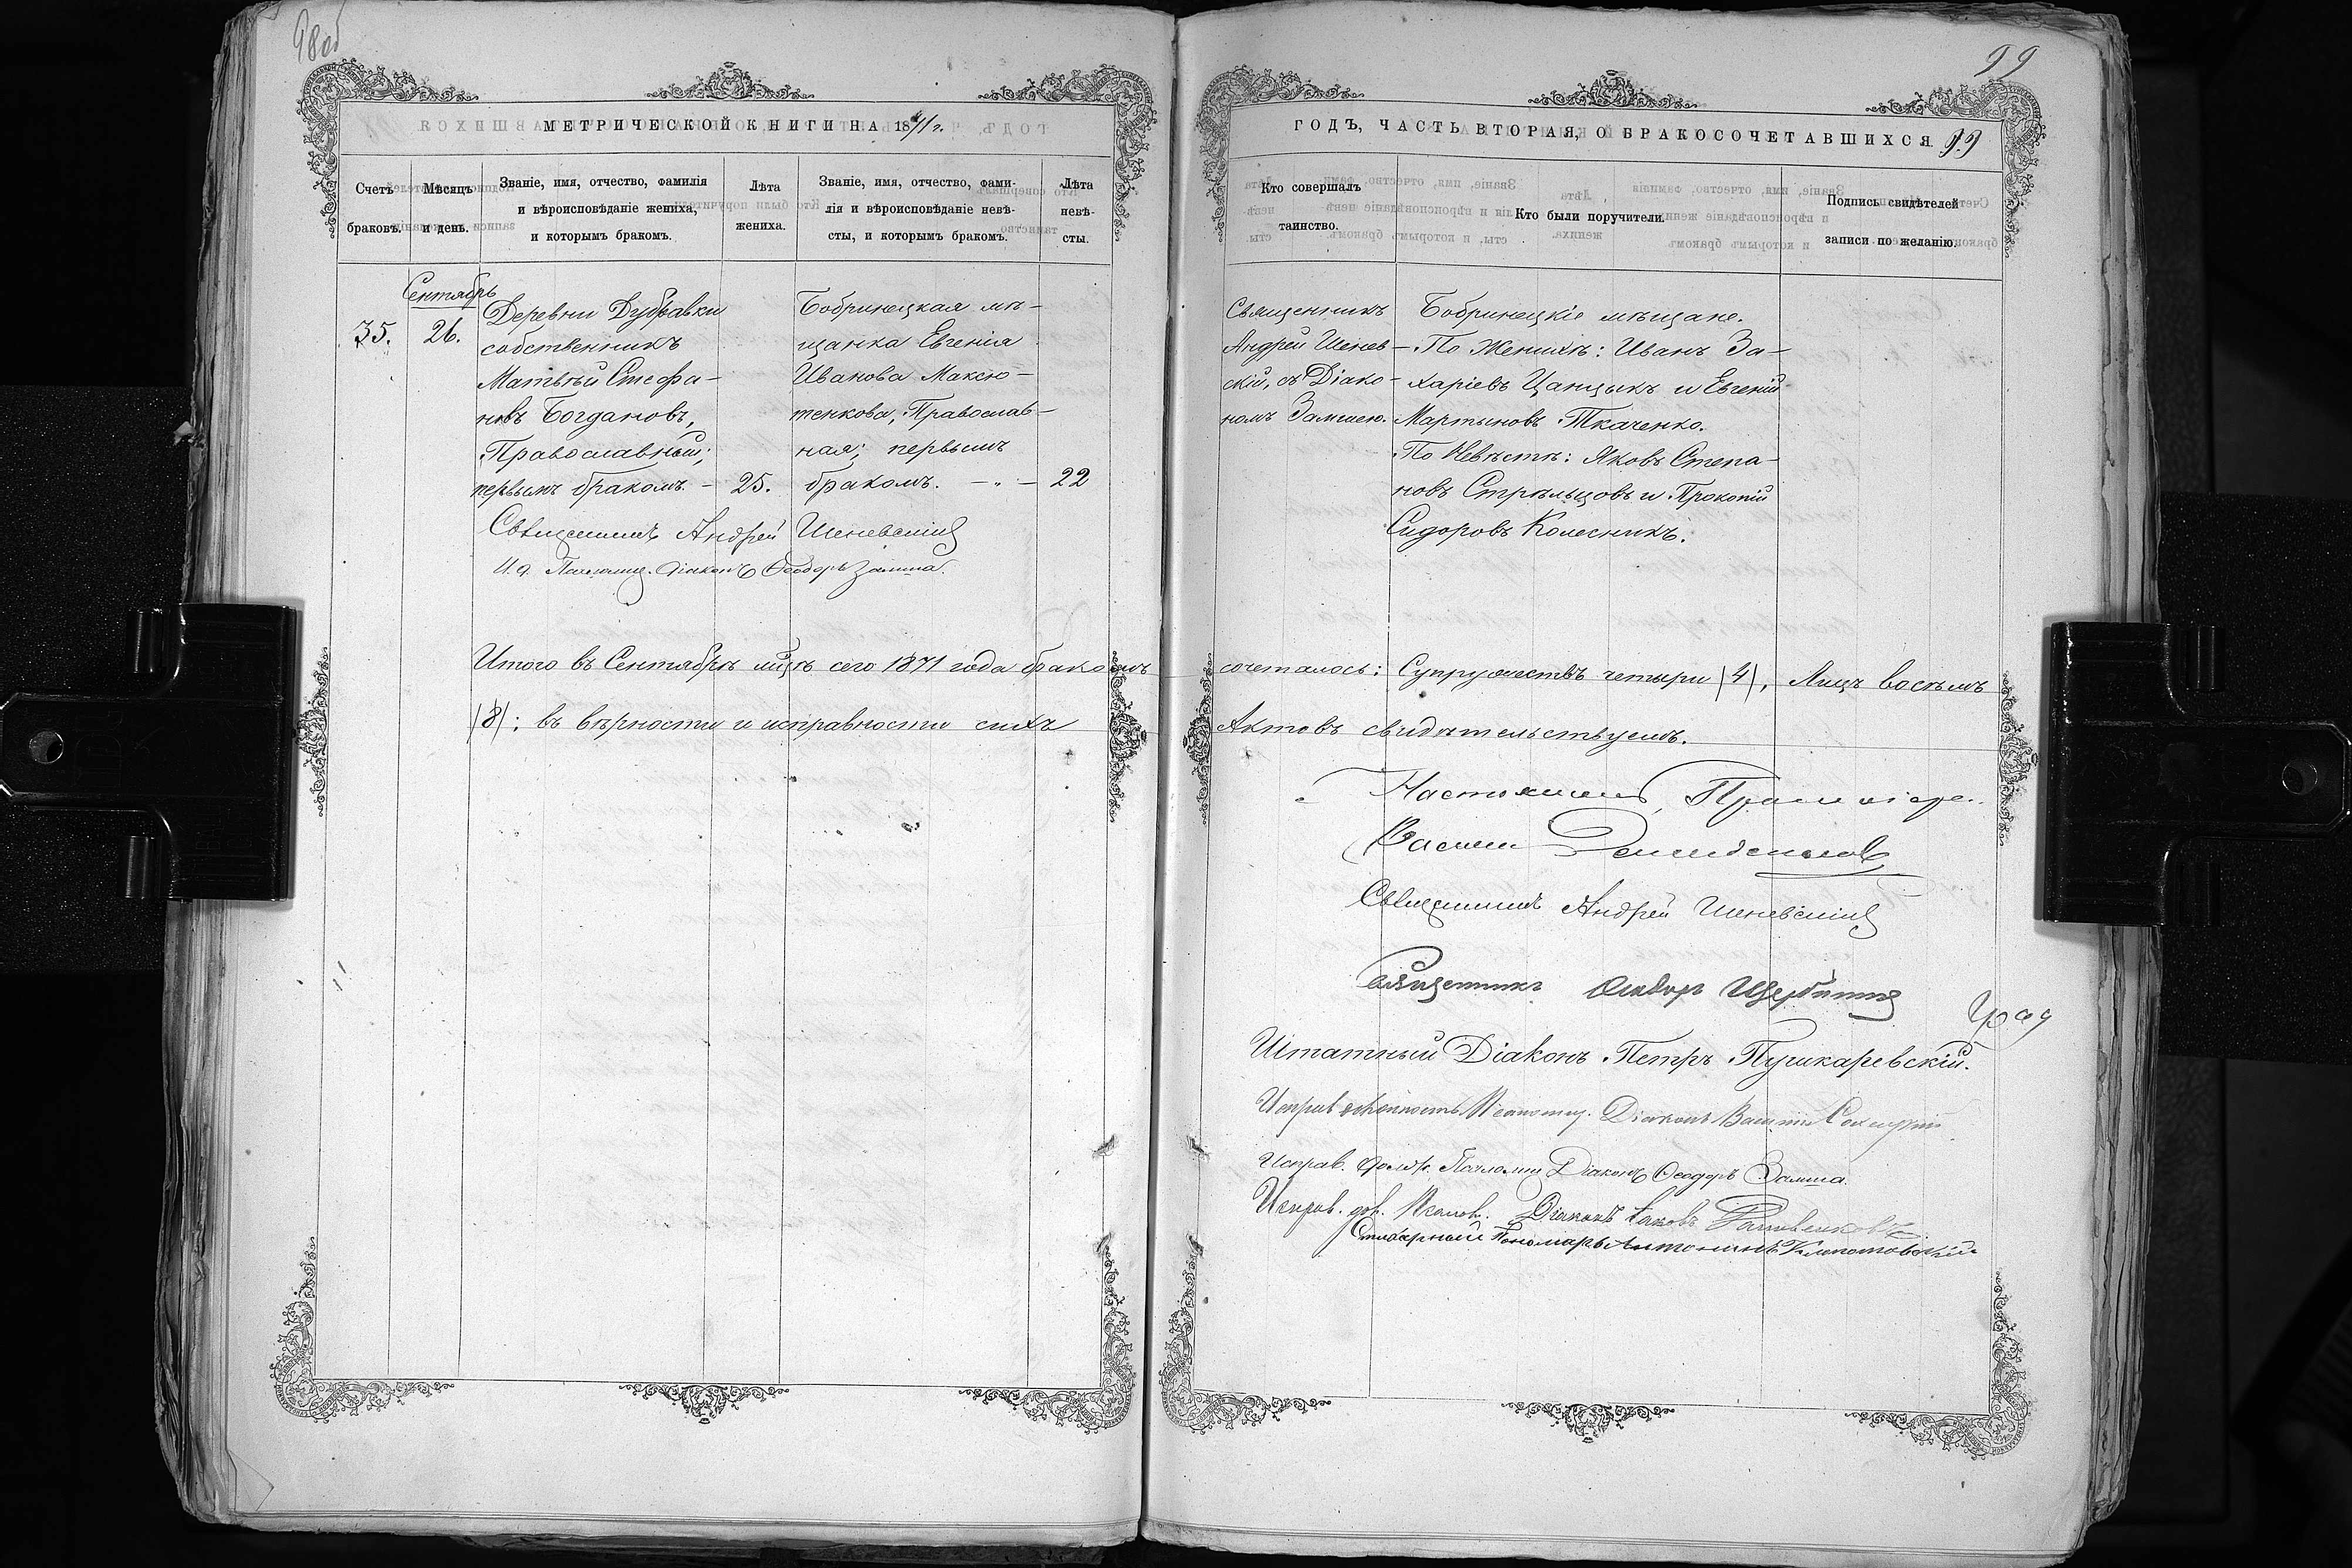 98об
МЕТРИЧЕСКОЙ КНИГИ НА 1871 г.
Счетъ браковъ.
Мѣсяцъ и день.
Званіе, имя, отчество, фамилія и вѣроисповѣданіе жениха, и которымъ бракомъ.
Лѣта жениха.
Званіе, имя, отчество, фами-
лія и вѣроисповѣданіе невѣ-
сты, и которымъ бракомъ.
Лѣта невѣ-
сты.
Сентябрь
35.
26.
Деревни Дубравки
собственникъ
Матвѣй Стефа-
новъ Богдановъ,
Православный;
первымъ бракомъ. - 25.
Бобринецкая мѣ-
щанка Евгенія
Иванова Максю-
тенкова, Православ-
ная; первымъ
бракомъ. - „ - 22
Священникъ Андрей Шеневскій
И. д. Псаломщ. Діаконъ Ѳеодоръ Замша.
Итого въ Сентябрѣ мцѣ сего 1871 года бракомъ
(8): въ вѣрности и исправности сихъ
99
ГОДЪ, ЧАСТЬ ВТОРАЯ, О БРАКОСОЧЕТАВШИХСЯ. 99
Кто совершалъ
таинство.
Кто были поручители.
Подпись свидѣтелей
записи по желанію.
Священникъ
Андрей Шенев-
скій, съ Діако-
номъ Замшею.
Бобринецкіе мѣщане.
По Женихѣ: Иванъ За-
харіевъ Цапцыкъ и Евгеній
Мартыновъ Ткаченко.
По Невѣстѣ: Яковъ Степа-
новъ Стрѣльцовъ и Прокопій
Сидоровъ Колесникъ.
сочеталось: Супружествъ четыри (4), Лицъ восемь
Актовъ свидѣтельствуемъ.
Священникъ Андрей Шеневскій
Священникъ
Штатный Діаконъ Петръ Пушкаревскій.
Исправ. должность Псаломщ. Діаконъ Василій
Исправ. долж. Псаломщ. Діаконъ Ѳеодоръ Замша.
Исправ. дол. Псалом. Діаконъ Іаковъ
Стихарный Пономарь Антонинъ